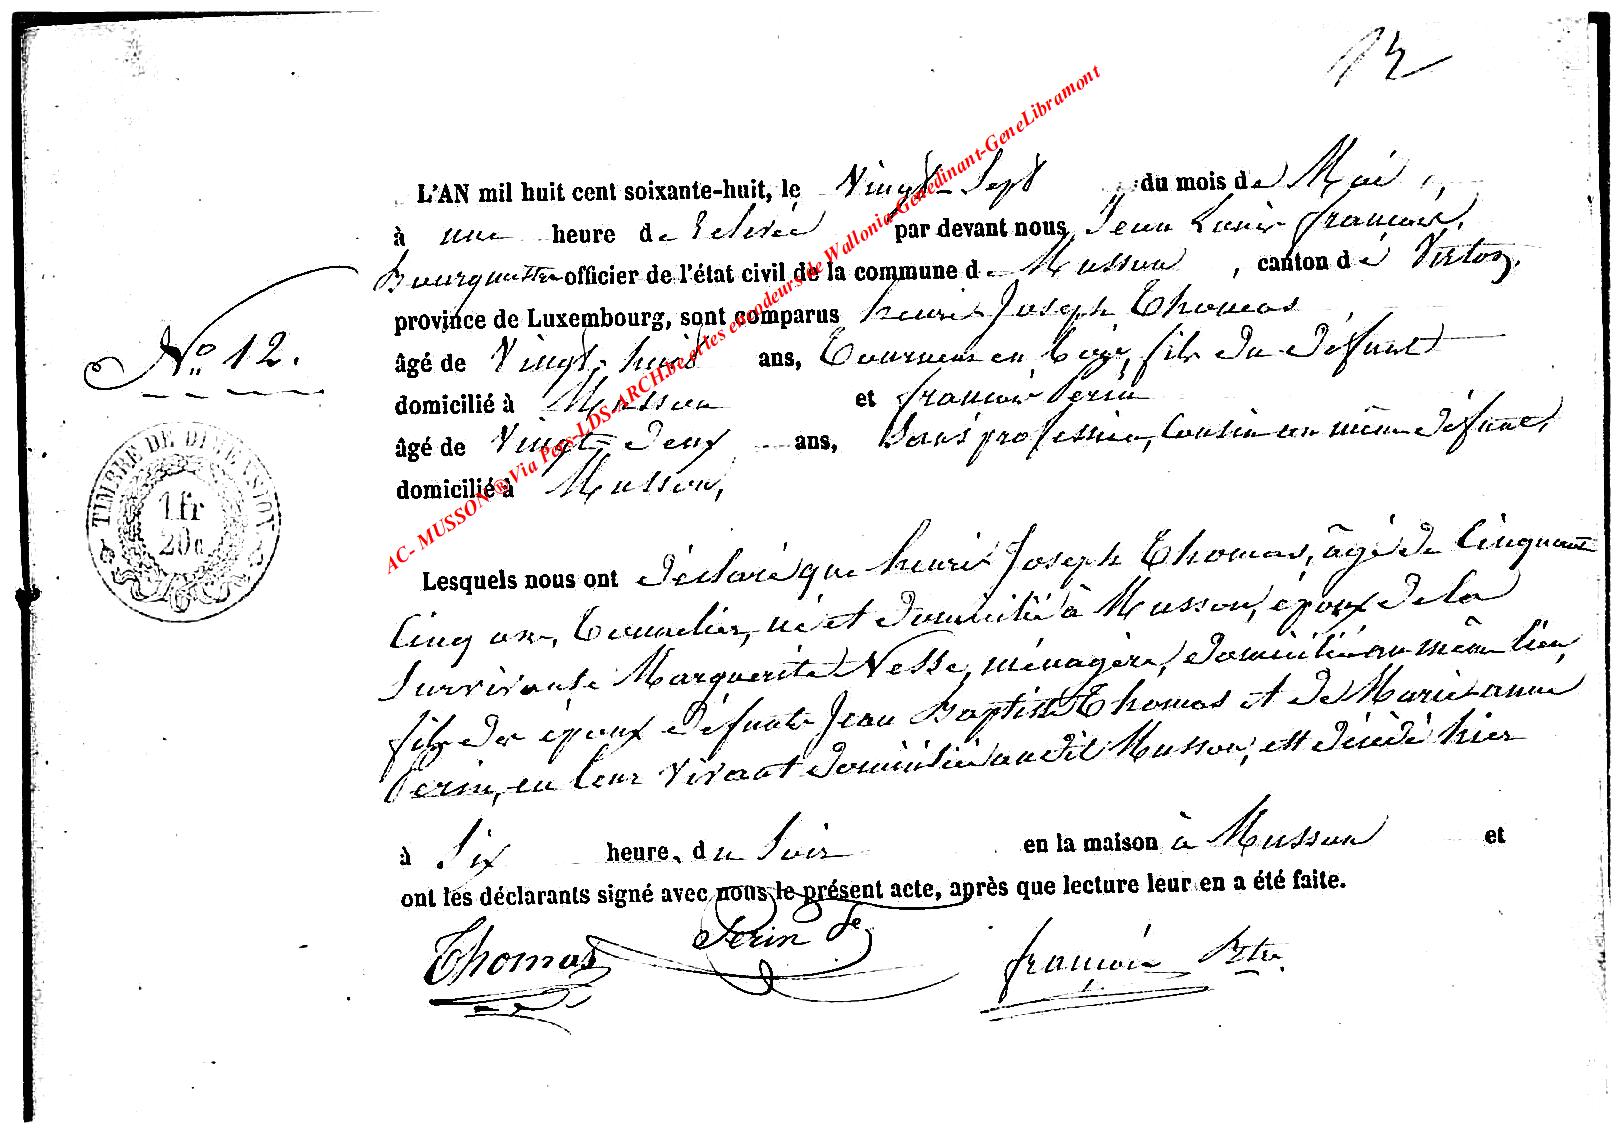 12
L'AN mil huit cent soixante-huit, le Vingt-Sept du mois de Mai,
à une heure de relevée par devant nous Jean Louis françois,
Bourgmestre officier de l'état civil de la commune de Musson, canton de Virton,
province de Luxembourg, sont comparus henri Joseph Thomas
âgé de Vingt-huit ans, Tourneur en bois, fils du défunt
domicilié à Musson et françois Perin
âgé de Vingt-deux ans, Sans profession, Cousin au même défunt,
domicilié à Musson,
Lesquels nous ont déclaré que henri Joseph Thomas, âgé de Cinquante
Cinq ans, Tonnelier, né et domicilié à Musson, époux de la
Survivante Marguerite Nesse, ménagère, domiciliée au même lieu,
fils des époux défunts Jean Baptiste Thomas et de Marie anne
Perin, en leur vivant domiciliés audit Musson, est décédé hier
à Six heure, du Soir en la maison à Musson et
ont les déclarants signé avec nous le présent acte, après que lecture leur en a été faite.
Thomas Perin fs françois Btre
No 12.
TIMBRE DE DIMENSION
1 fr
20 c
AC- MUSSON ® Via Pers-LDS-ARCH.be et les encodeurs de Wallonia-Genedinant-GeneLibramont